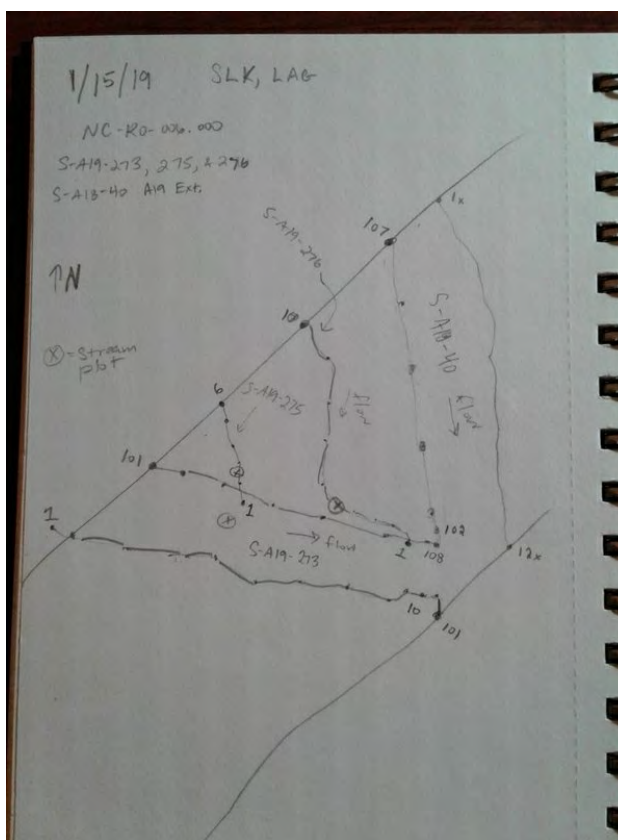 1/15/19 SLK, LAG
NC-RO-006.000
S-A19-273, 275, & 276
S-A18-40 A19 Ext.
↑N
ⓧ = Stream
plot
1x
107
S-A19-276
10
S-A18-40
flow
flow
6
S-A19-275
101
1
1
102
108
1
flow
S-A19-273
12x
10
101